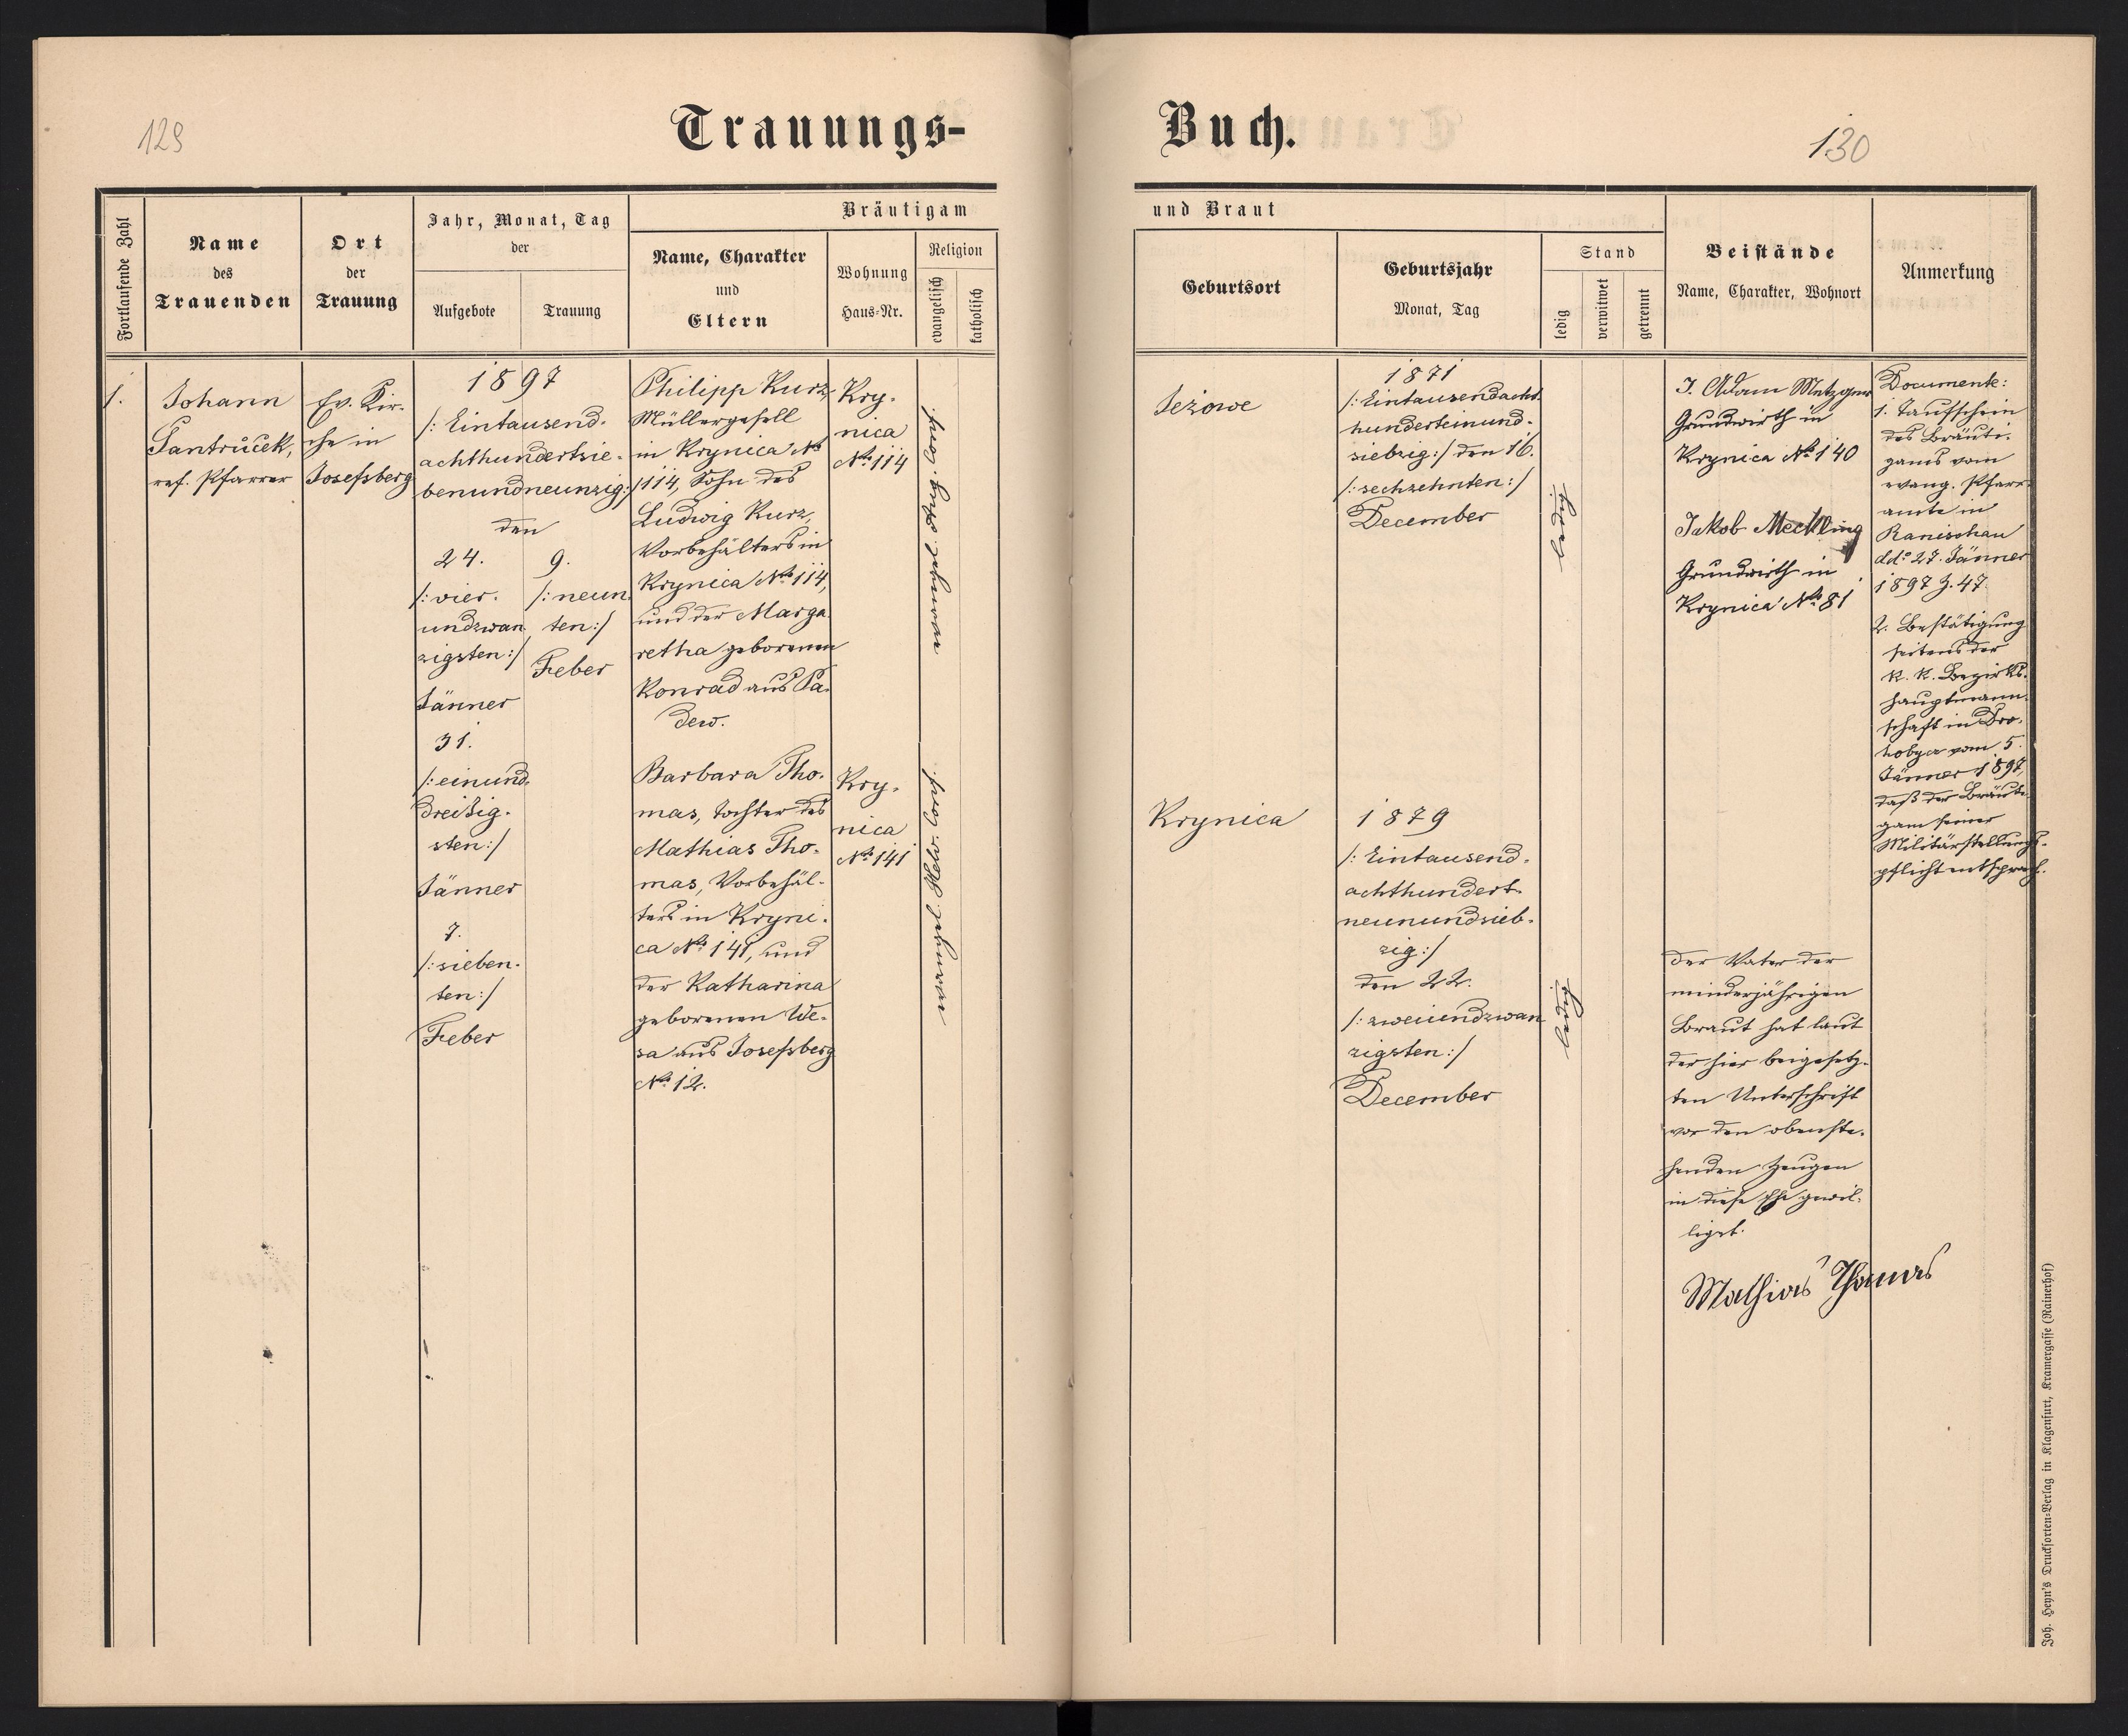 129
Trauungs-
Buch.
130
Fortlaufende Zahl
Name
des
Trauenden
Ort
der
Trauung
Jahr, Monat, Tag
der
Aufgebote
Trauung
Bräutigam
Name, Charakter
und
Eltern
Wohnung
Haus-Nr.
Religion
evangelisch
katholisch
und Braut
Geburtsort
Geburtsjahr
Monat, Tag
Stand
ledig
verwitwet
getrennt
Beistände
Name, Charakter, Wohnort
Anmerkung
1.
Johann
Pantrůček,
ref. Pfarrer
Ev. Kir-
che in
Josefsberg
1897
/: Eintausend-
achthundertsie-
benundneunzig:/
den
24.
/: vier-
undzwan
zigsten:/
Jänner
31.
/: einund-
dreißig-
sten:/
Jänner
7.
/: sieben-
ten:/
Feber
9.
/: neun
ten:/
Feber
Philipp Kurz,
Müllergesell
in Krynica No
114, Sohn des
Ludwig Kurz,
Vorbehälters in
Krynica No 114,
und der Marga-
retha geborenen
Konrad aus Pa-
dew.
Kry-
nica
No 114
evangel. augs. Conf.
Barbara Tho-
mas, Tochter des
Mathias Tho-
mas, Vorbehäl-
ters in Kryni-
ca No 141, und
der Katharina
geborenen We-
sa aus Josefsberg
No 12.
Kry-
nica
No 141
evangel. Helv. Conf.
Jeżowe
1871
/: Eintausendacht-
hunderteinund-
siebzig:/ den 16.
/: sechzehnten:/
December
ledig
J. Adam Metzger
Grundwirth in
Krynica No 140
Jakob Meckling
Grundwirth in
Krynica No 81
Documente:
1. Taufschein
des Bräuti-
gams vom
evang. Pfarr-
amte in
Ranischau
ddo 27. Jänner
1897 Z. 47.
2. Bestätigung
seitens der
K. K. Bezirks-
hauptmann-
schaft in Dro-
hobycz vom 5.
Jänner 1897,
daß der Bräuti-
gam seiner
Militärstellungs-
pflicht entsprach.
Krynica
1879
/: Eintausend-
achthundert-
neunundsieb-
zig:/
den 22.
/: zweiundzwan
zigsten:/
December
ledig
Der Vater der
minderjährigen
Braut hat laut
der hier beigesetz-
ten Unterschrift
vor den obenste-
henden Zeugen
in diese Ehe gewil-
ligt.
Mathias Thomas
Joh. Heyn's Drucksorten-Verlag in Klagenfurt, Kramergasse (Rainerhof)